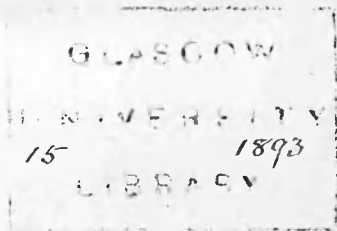 GLASGOW
UNIVERSITY
15 1893
LIBRARY